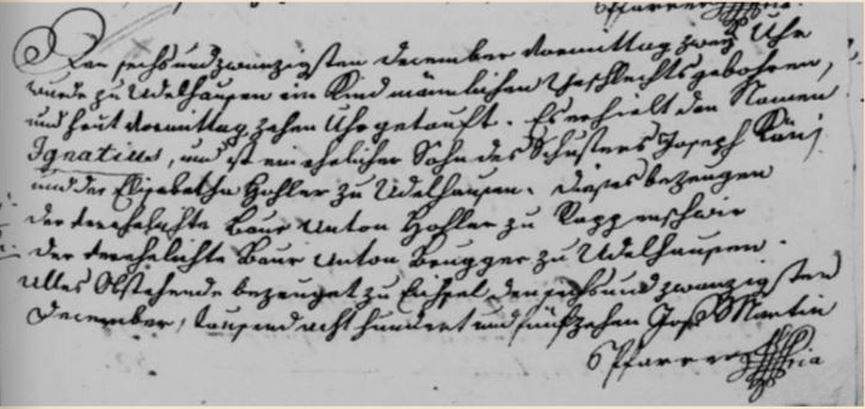 Pfarrer
Den sechsundzwanzigsten December Vormittag zwey Uhr
wurde zu Adelhausen ein Kind männlichen Geschlechts gebohren,
und heut Vormittag zehen Uhr getauft. Es erhielt den Namen
Ignatius, und ist ein ehelicher Sohn des Schusters Joseph
und der Elisabetha Hohler zu Adelhausen. Dieses bezeugen
der verehelichte Baur Anton Hohler zu
der verehelichte Baur Anton Brugger zu Adelhausen.
Alles Obstehende bezeuget zu Eichsel den sechsundzwanzigsten
December, tausend acht hundert und fünfzehen Jos. Martin
Pfarrer